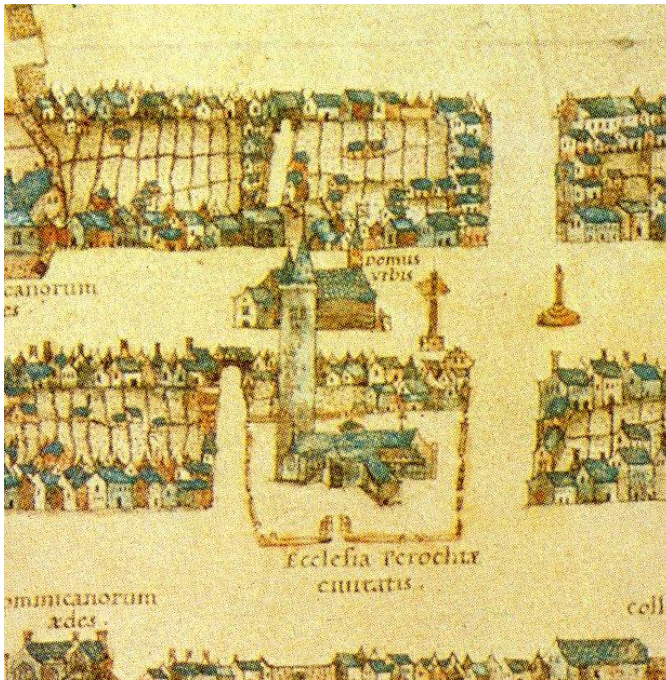 Domus
vrbis
canorum
es.
Ecclesia Perochiæ
ciuitatis.
ominicanorum
ædes.
coll